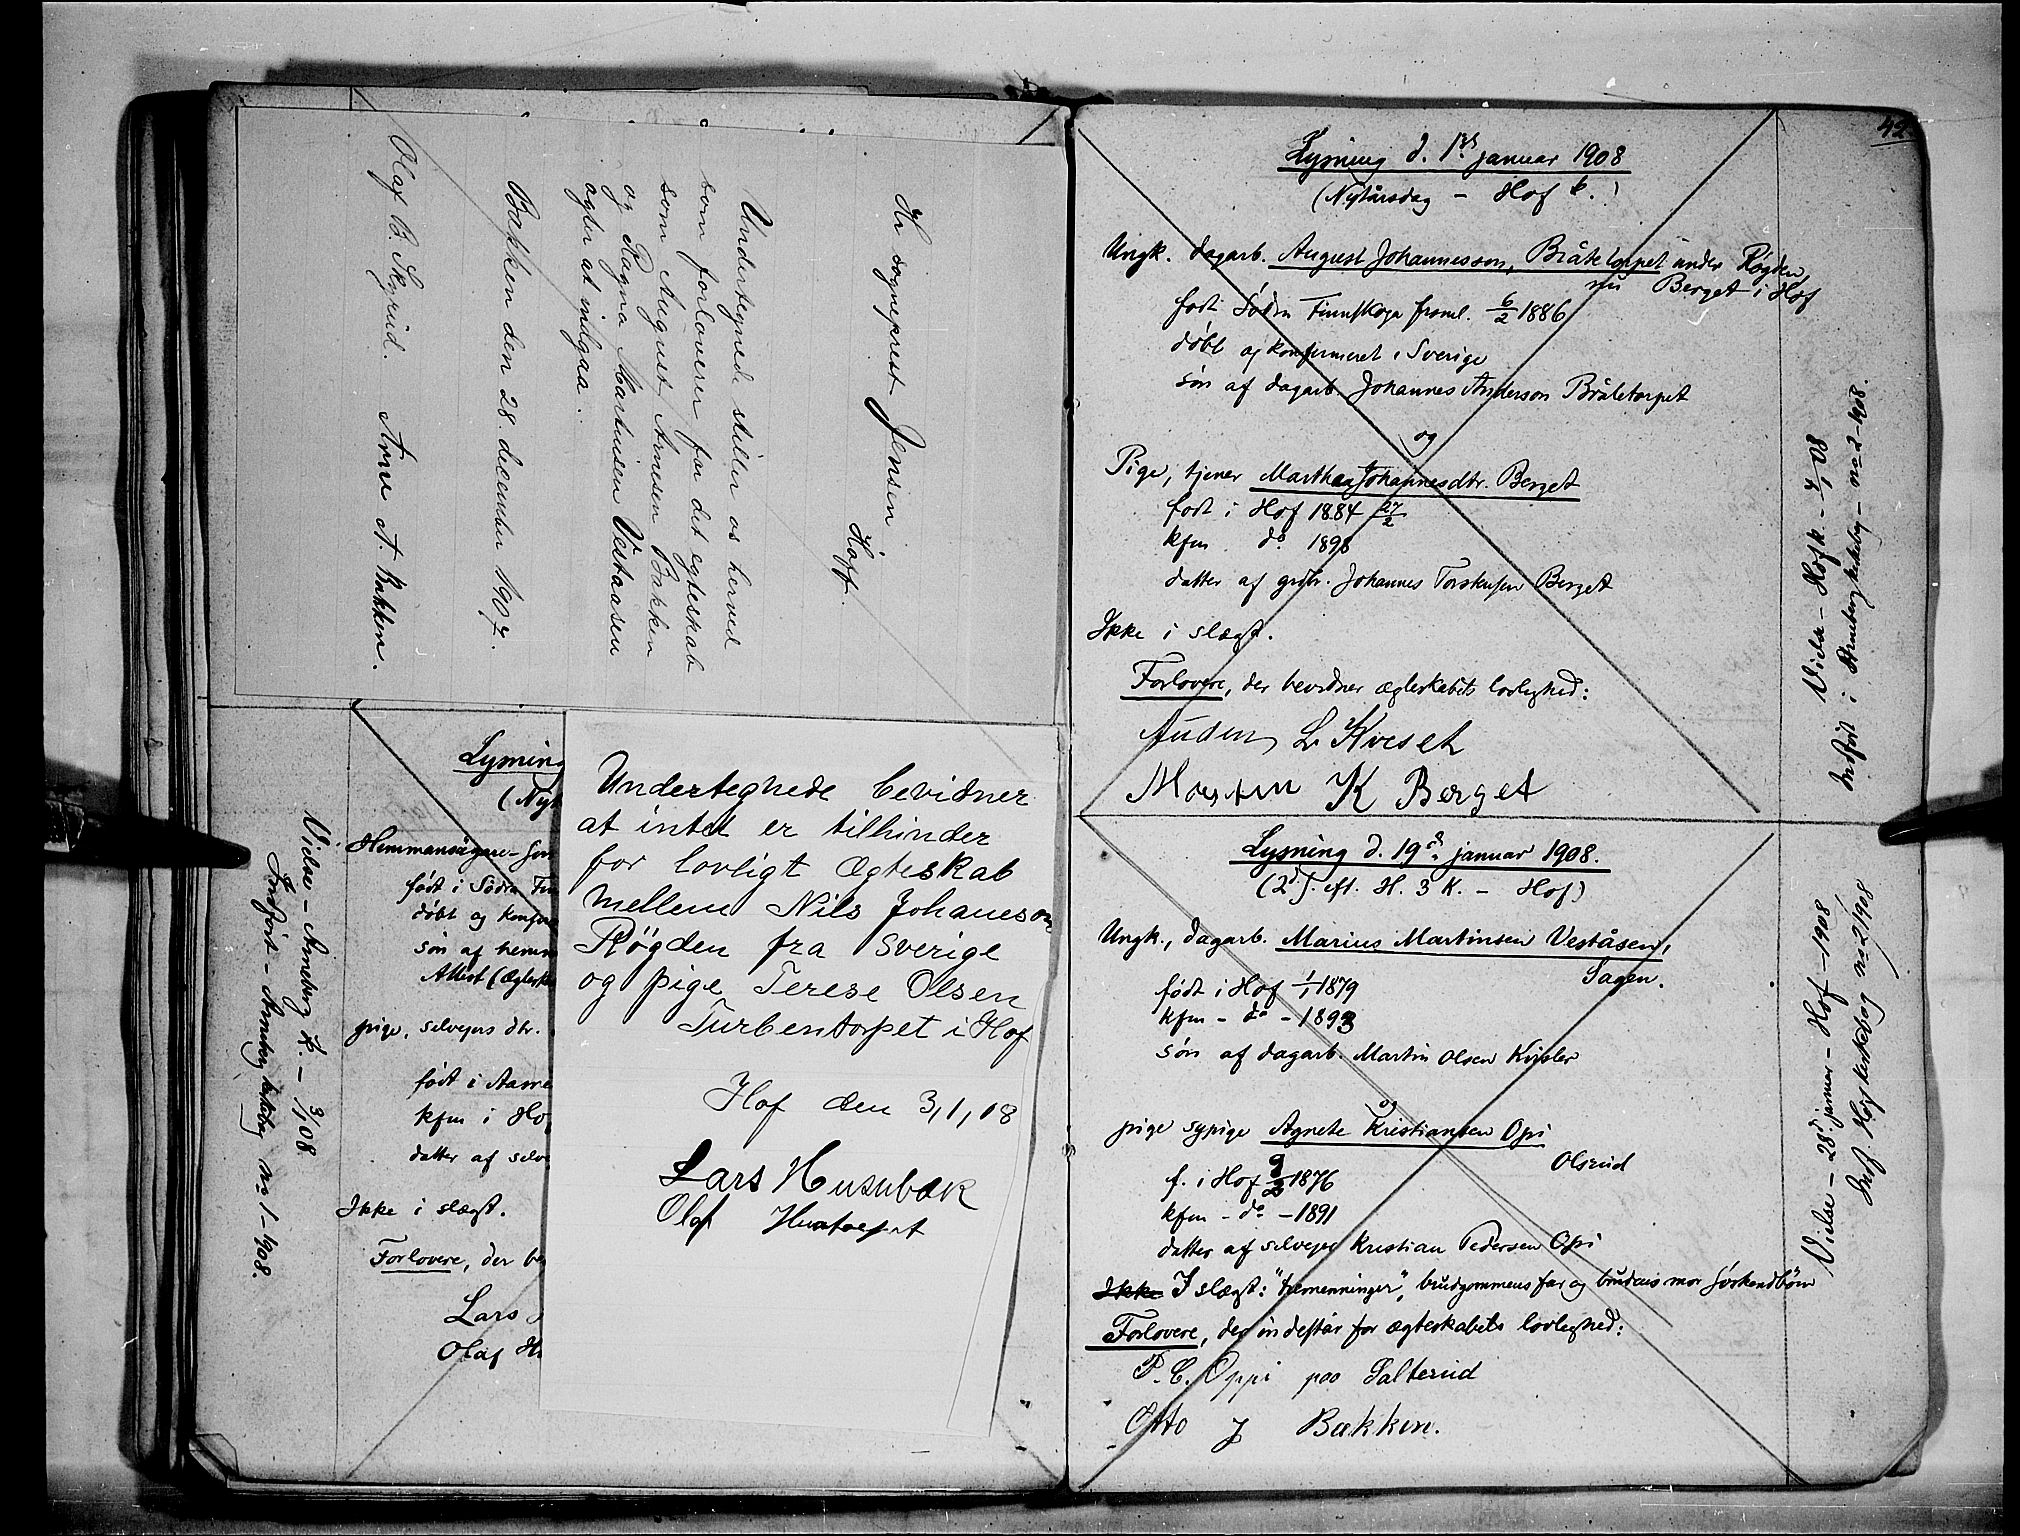 Hr sogneprest Jensen
Hoff.
Undertegnede stiller os herved
som forlovere for det egteskab
som August Arnesen Bakken
og Ragna Martinsen Vestaasen
agter at indgaa.
Bakken den 28. december 1907.
Olaf B. Skyrud. Arne A. Bakken.
Lysning
(Nyt
Hemmansägare-
født i Södra
døbt og konf
søn af hemm
Attest (Ægtesk
pige, selveiers dtr.
født i Aasne
kfm i Ho
datter af selve
Ikke i slægt.
Forlovere, der be
Lars
Olaf H
Vielse - Arneberg k. - 3/1 08
Indført - Arneberg kirkebog no 1 - 1908.
Undertegnede bevidner
at intet er tilhinder
for lovligt Ægteskab
mellem Nils Johaneson
Røgden fra Sverige
og pige Terese Olsen
Turbentorpet i Hof
Hof den 3,1,08
Lars Husubæk
Olaf
42.
Lysning d. 1ste januar 1908
(Nytårsdag - Hof k.)
Ungk. dagarb. August Johannesson, Bråtetorpet under Røgden,
nu Berget i Hof
født Södra Finnskoga framl. 6/2 1886
døbt og konfirmeret i Sverige
søn af dagarb. Johannes Anderson Bråtetorpet
og
Pige, tjener Marthea Johannesdtr. Berget
født i Hof 1884 27/2
kfm do 1898
datter af grdbr. Johannes Torstensen Berget
Ikke i slægt.
Forlovere, der bevidner ægteskabets lovlighed:
Auden L Kveset
Morten K Berget
Vielse - Hof k. - 08
Indført i Arneberg kirkebog - no 2 - 1908.
Lysning d. 19de januar 1908.
(2d S. eft. H. 3 K. - Hof)
Ungk., dagarb. Marius Martinsen Veståsen,
Sagen.
født i Hof 1/1 1879
kfm - do - 1893
søn af dagarb. Martin Olsen Kvisler
og
pige sypige Agnete Kristiansen Opi
Olsrud
f. i Hof 9/2 1876
kfm - do - 1891
datter af selveier Kristian Pedersen Opi
Ikke I slægt: "tremenninger", brudgommens far og brudens mor søskendbørn
Forlovere, der indestår for ægteskabets lovlighed:
P. C. Oppi paa Salterud
Otto J Bakken.
Vielse - 28d januar - Hof - 1908
Indf Hof kirkebog no 2 1908